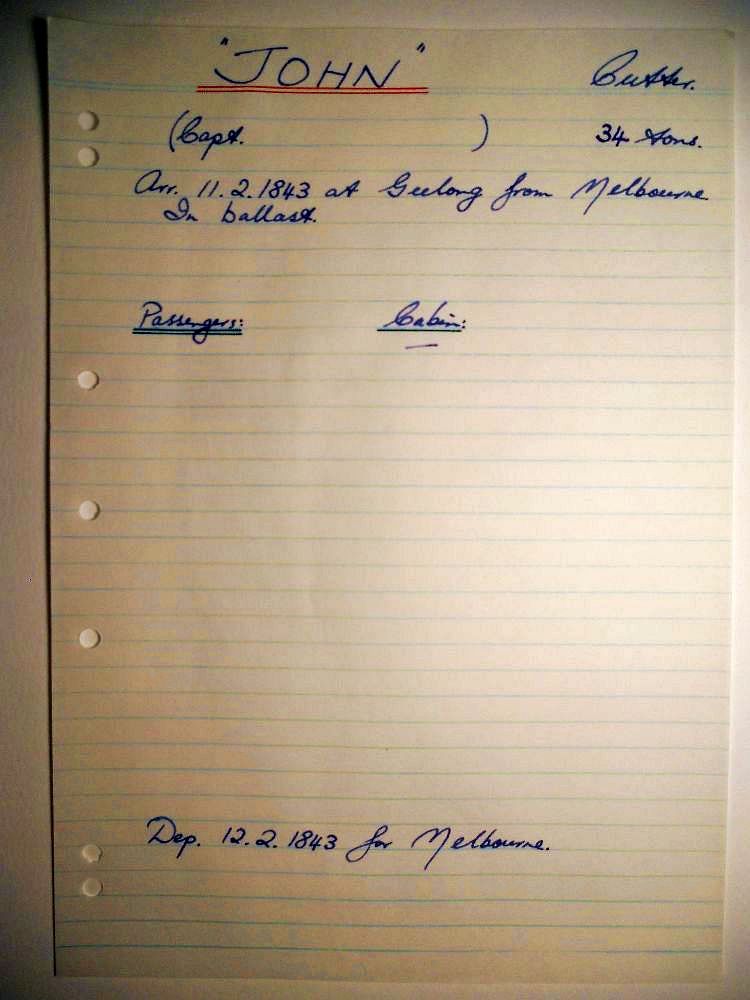 "JOHN" Cutter.
(Capt. ) 34 tons.
Arr. 11.2.1843 at Geelong from Melbourne
In ballast.
Passengers: Cabin:
—
Dep. 12.2.1843 for Melbourne.